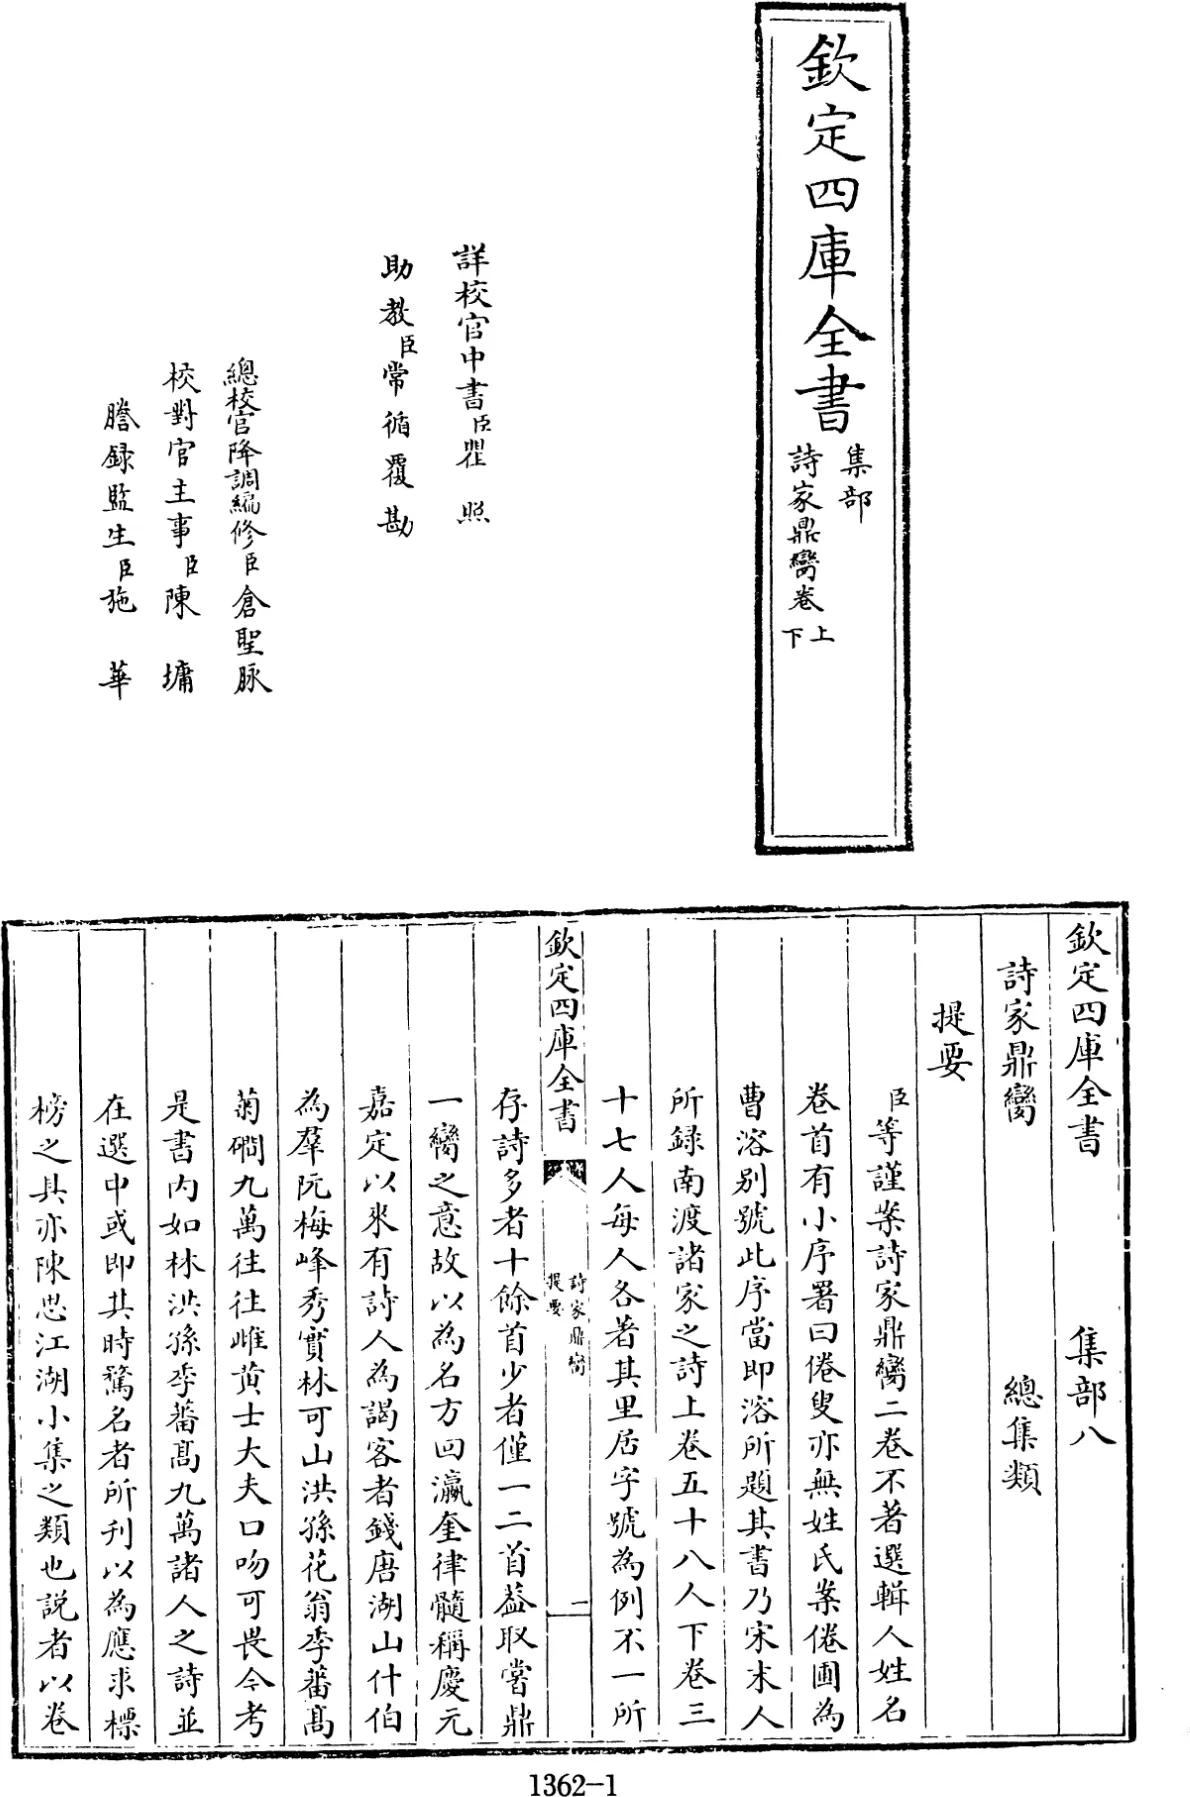 欽定四庫全書
集部
詩家鼎臠卷上
下
詳校官中書臣瞿照
助教臣常循覆勘
總校官降調編修臣倉聖脉
校對官主事臣陳墉
謄錄監生臣施華
欽定四庫全書 集部八
詩家鼎臠 總集類
提要
臣等謹案詩家鼎臠二卷不著選輯人姓名
卷首有小序署曰倦叟亦無姓氏案倦圃為
曹溶別號此序當即溶所題其書乃宋末人
所錄南渡諸家之詩上卷五十八人下卷三
十七人每人各著其里居字號為例不一所
欽定四庫全書
詩家鼎臠
提要
一
存詩多者十餘首少者僅一二首葢取嘗鼎
一臠之意故以為名方回瀛奎律髓稱慶元
嘉定以來有詩人為謁客者錢唐湖山什伯
為羣阮梅峰秀實林可山洪孫花翁季蕃髙
菊磵九萬往往雌黃士大夫口吻可畏今考
是書内如林洪孫季蕃髙九萬諸人之詩並
在選中或即其時驚名者所刋以為應求標
榜之具亦陳思江湖小集之類也説者以卷
1362-1